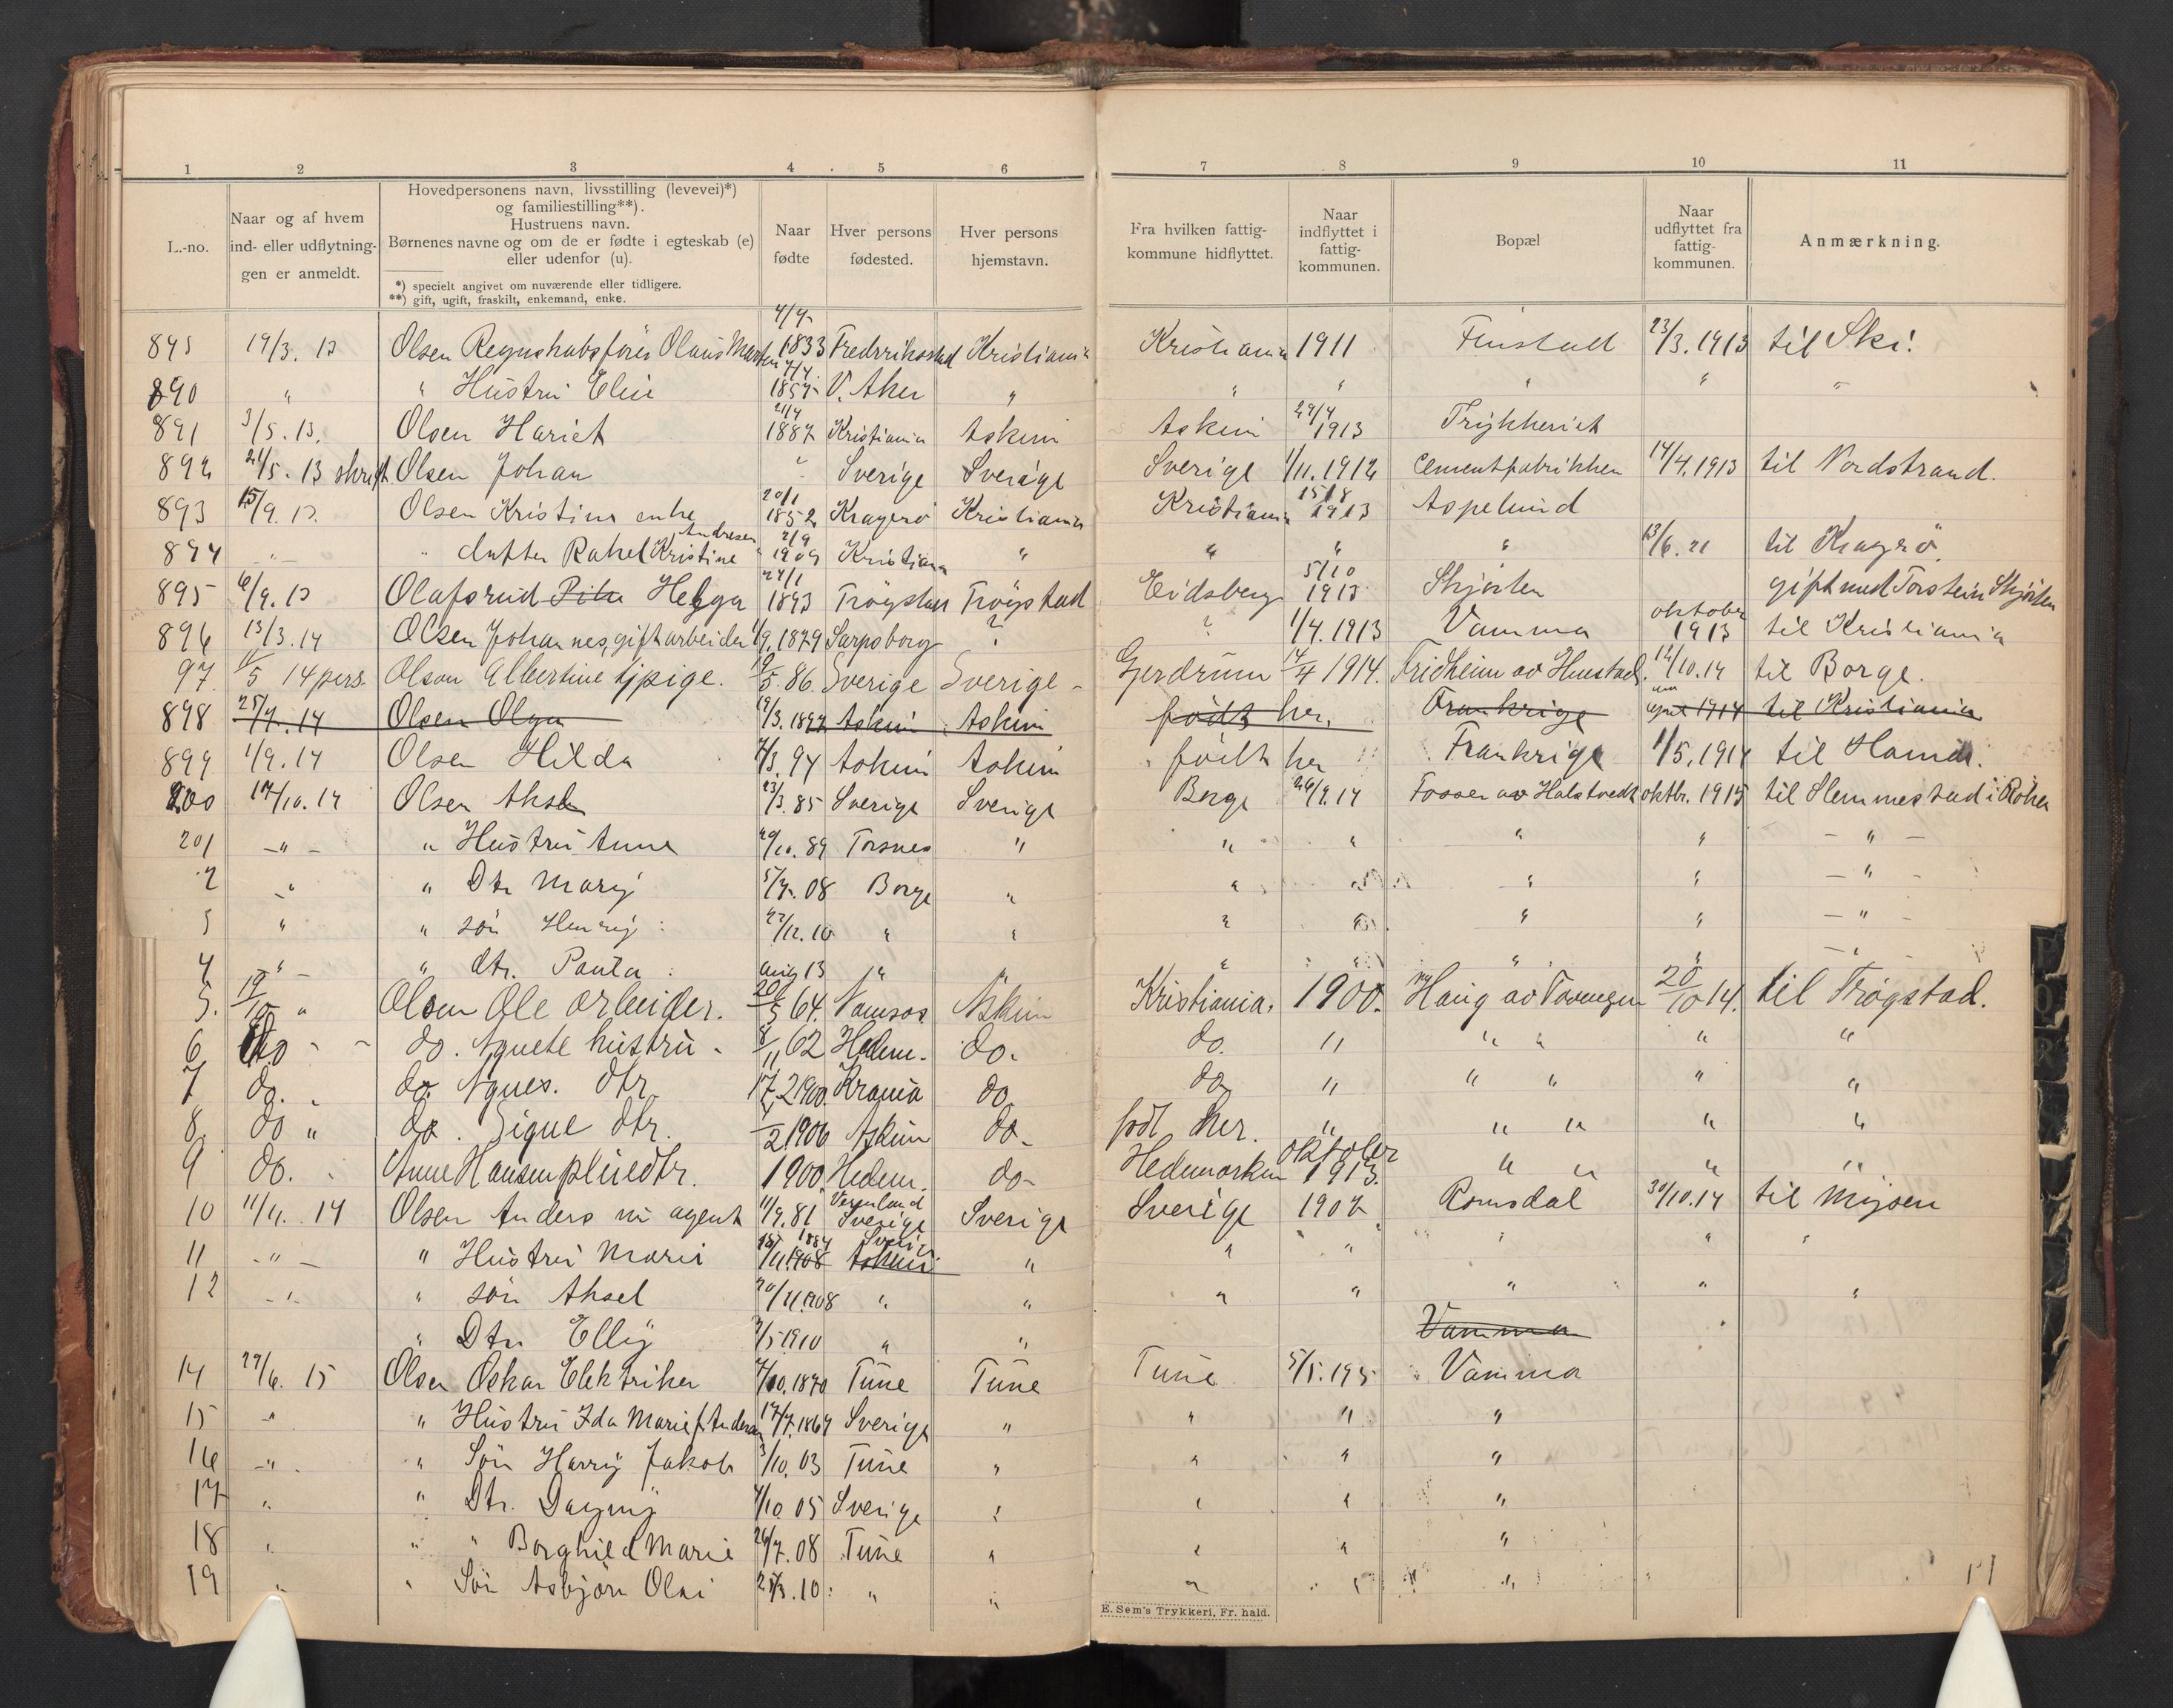 1 2 3 4 5 6 7 8 9 10 11
L.-no.
Naar og af hvem
ind- eller udflytnin-
gen er anmeldt.
Hovedpersonens navn, livsstilling (levevei)*)
og familiestilling**).
Hustruens navn.
Børnenes navne og om de er fødte i egteskab (e)
eller udenfor (u).
*) specielt angivet om nuværende eller tidligere.
**) gift, ugift, fraskilt, enkemand, enke.
Naar
fødte
Hver persons
fødested.
Hver persons
hjemstavn.
Fra hvilken fattig-
kommune hidflyttet.
Naar
indflyttet i
fattig-
kommunen.
Bopæl
Naar
udflyttet fra
fattig-
kommunen.
Anmærkning.
19/3. 13 Olsen Regnskabsfører Olaus 1833 Fredrikstad Kristiania Kristiania 1911 Finstad 23/3. 1913 til Ski.
890 " " Hustru Elin V. Aker " " " " " "
891 3/5. 13. Olsen Hariet 1887 Kristiania Askim Askim 29/4 1913 Trykkeriet
892 21/5. 13 Olsen Johan " Sverige Sverige Sverige 1/11. 1912 Cementfabrikken 14/4. 1913 til Nordstrand.
893 15/9. 13. Olsen Kristine enke 20/1 1852 Kragerö Kristiania Kristiania 15/8 1913 Aspelund
894 " " datter Rakel Kristine Andresen 2/9 1909 Kristiania " " " " 13/6. 21 til Kragerö
895 6/9. 13 Olafsrud Helga 24/1 1893 Trögstad Trögstad Eidsberg 5/10 1913 Skjörten gift med Torstein Skjörten
896 13/3. 14 Olsen Johannes, gift arbeider 1/9. 1879 Sarpsborg ? ? 1/4. 1913 Vamma oktober 1913 til Kristiania
97. 14 pers. Olsen Albertine pige. 5. 86. Sverige Sverige - Gjerdrum 14/4 1914. Fridheim av Hustad. 12/10. 14 til Borge.
898 25/7. 14 Olsen Olga 19/3. 1897 Askim Askim födt her. Frankrige april 1914 til Kristiania
899 1/9. 14 Olsen Hilda 7/3. 94 Askim Askim födt her Frankrige 1/5. 1914 til Hamar.
900 17/10. 14 Olsen Aksel 23/3. 85 Sverige Sverige Borge 26/9. 14 Fosser av Halstvedt oktbr. 1915 til Slemmestad i Röken
201 - " - " Hustru Anne 20/10. 89 Torsnes " " " " " - " -
2 " " Dtr Mary 5/7. 08 Borge " " " " " - " -
3 " " sön Henry 22/12. 10 " " " " " " - " -
4 " - " dtr. Paula aug 13 " " " " " " - " -
5. 19/10 " Olsen Ole arbeider. 20/5 64. Namsos Askim Kristiania. 1900. Haug av Tovengen 20/10 14. til Trøgstad.
6 do - - do. Agnete hustru - 8/11 62 Hedem. do. do. " " " " "
7 do. " do. Agnes. dtr 17/2 1900. Krania do do " " " " "
8. do " do. Signe dtr. 2 1906 Askim do. født her. " " " " "
9 do. " Anne Hansen pleiedtr. 1900 Hedem. do - Hedemarken oktober 1913. " " " "
10 11/11. 14 Olsen Anders nu agent 11/9. 81 Vermland Sverige Sverige Sverige 1907 Romsdal 30/10. 14 til Mysen
11 - " - " Hustru Marie 1884 1908 Sverige Askim " " " " " "
12 - " - " sön Aksel 20/11. 1908 " " " " " " "
" Dtr Elly 2/5 1910 " " Vamma
14 29/6. 15 Olsen Oskar Elektriker 7/10. 1870 Tune Tune Tune 5/5. 195 Vamma
15 " " Hustru Ida Marie f. Andersen 17/7. 1867 Sverige " " " "
16 - " - " Sön Harry Jakob 3/10. 03 Tune " " " "
17 " " Dtr. Dagny 7/10. 05 Sverige " " " "
18 " " " Borghild Marie 26/7. 08 Tune " " " "
19 " " Sön Asbjörn Olai 25/3. 10 " " " " "
E. Sem's Trykkeri, Fr. hald.